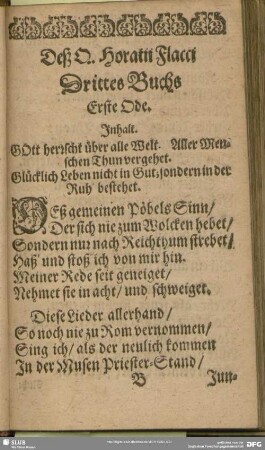 Deß Q. Horatii Flacci
Drittes Buchs
Erste Ode.
Inhalt.
GOtt herrscht über alle Welt. Aller Men-
schen Thun vergehet.
Glücklich Leben nicht in Gut, sondern in der
Ruh' bestehet.
DEß gemeinen Pöbels Sinn/
Der sich nie zum Wolcken hebet/
Sondern nur nach Reichthum strebet/
Haß' und stoß ich von mir hin.
Meiner Rede seit geneiget/
Nehmet sie in acht/ und schweiget.
Diese Lieder allerhand/
So noch nie zu Rom vernommen/
Sing ich/ als der neulich kommen
In der Musen Priester-Stand/
B Jun-
SLUB
DFG